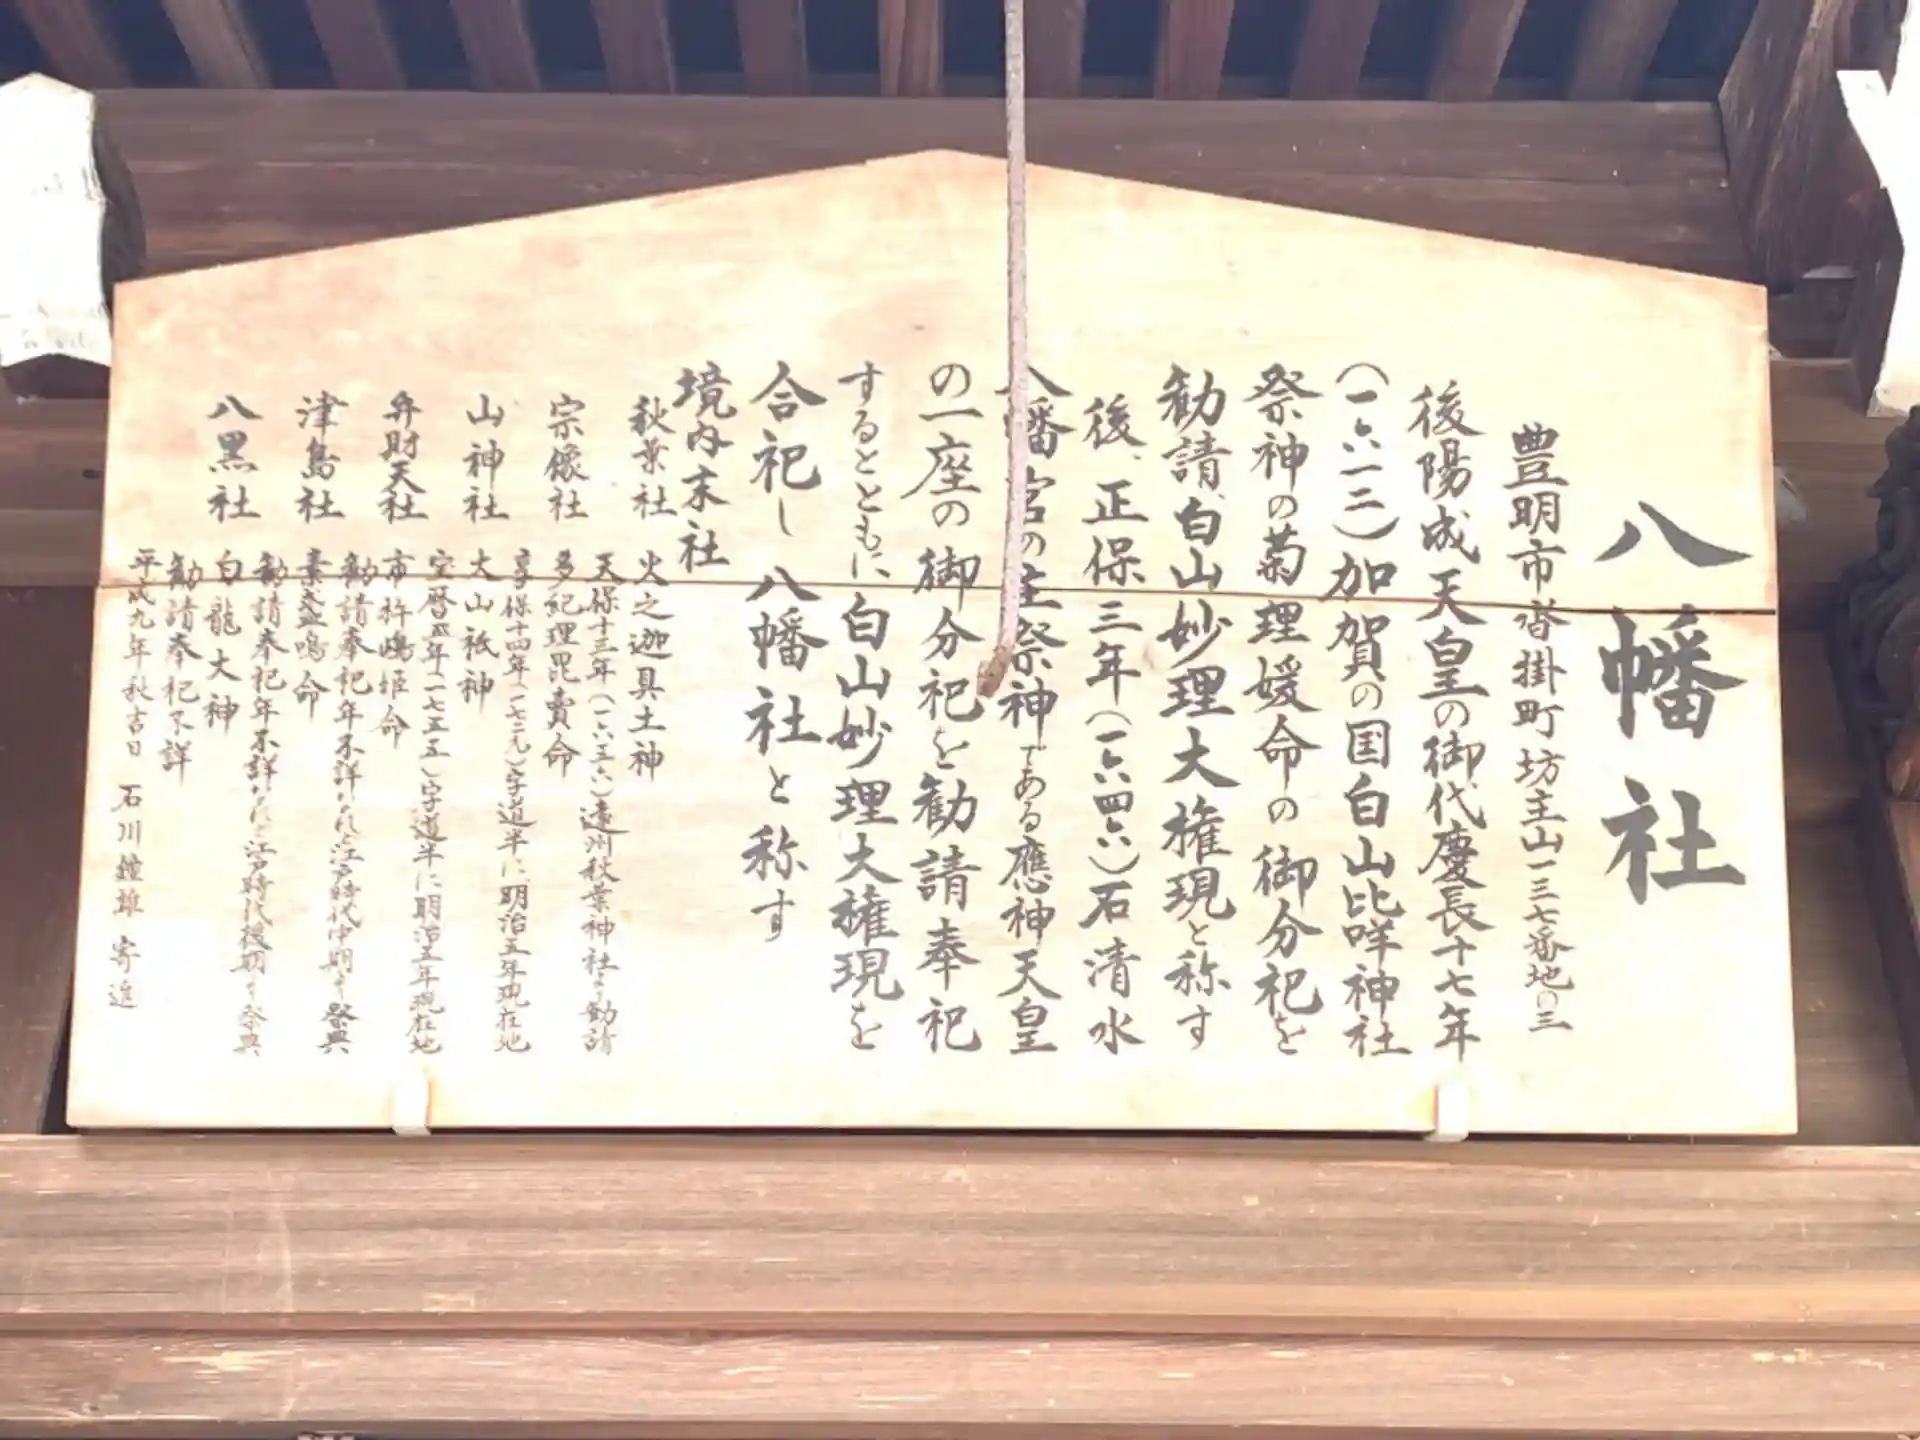 八幡社
豊明市沓掛町坊主山一三七番地の三
後陽成天皇の御代慶長十七年
(一六一二)加賀の国白山比咩神社
祭神の菊理媛命の御分祀を
勧請、白山妙理大権現と称す
後、正保三年(一六四六)石清水
八幡宮の主祭神である應神天皇
の一座の御分祀を勧請奉祀
するとともに、白山妙理大権現を
合祀し八幡社と称す
境内末社
秋葉社 火之迦具土神
天保十三年(一六三六)遠州秋葉神社より勧請
宗像社 多紀理毘賣命
享保十四年(一七二九)字道半に明治五年現在地
山神社 大山祇神
宝暦五年(一七五五)字道半に明治五年現在地
弁財天社 市杵嶋姫命
勧請奉祀年不詳なれど江戸時代中期より祭典
津島社 素盞嗚命
勧請奉祀年不詳なれど江戸時代後期より祭典
八黒社 白龍大神
勧請奉祀不詳
平成九年秋吉日 石川鐘雄 寄進